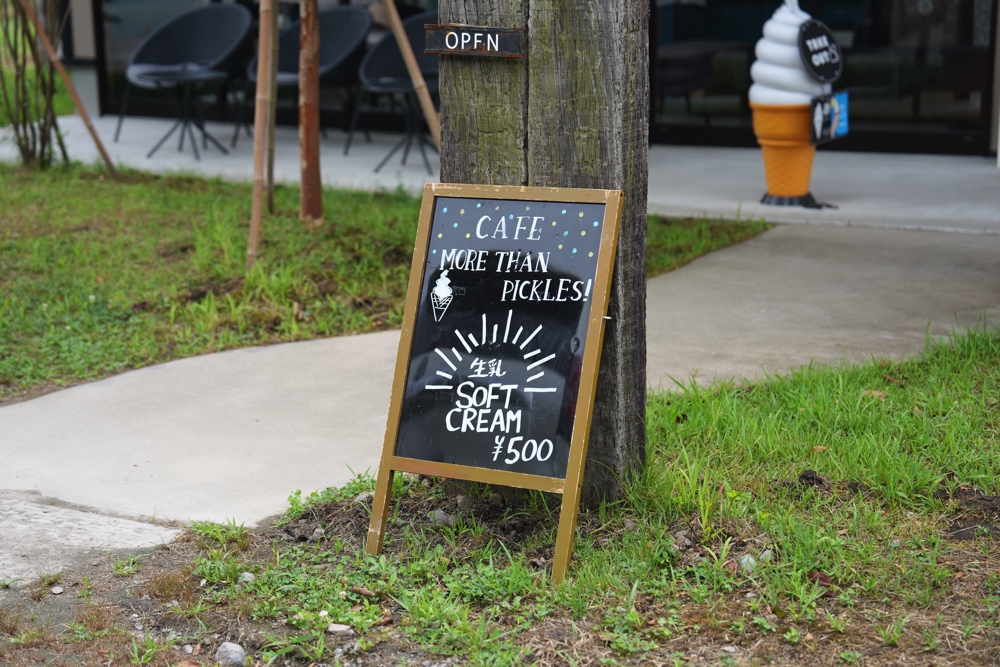 OPEN
TAKE
OUT
CAFE
MORE THAN
PICKLES!
生乳
SOFT
CREAM
¥500